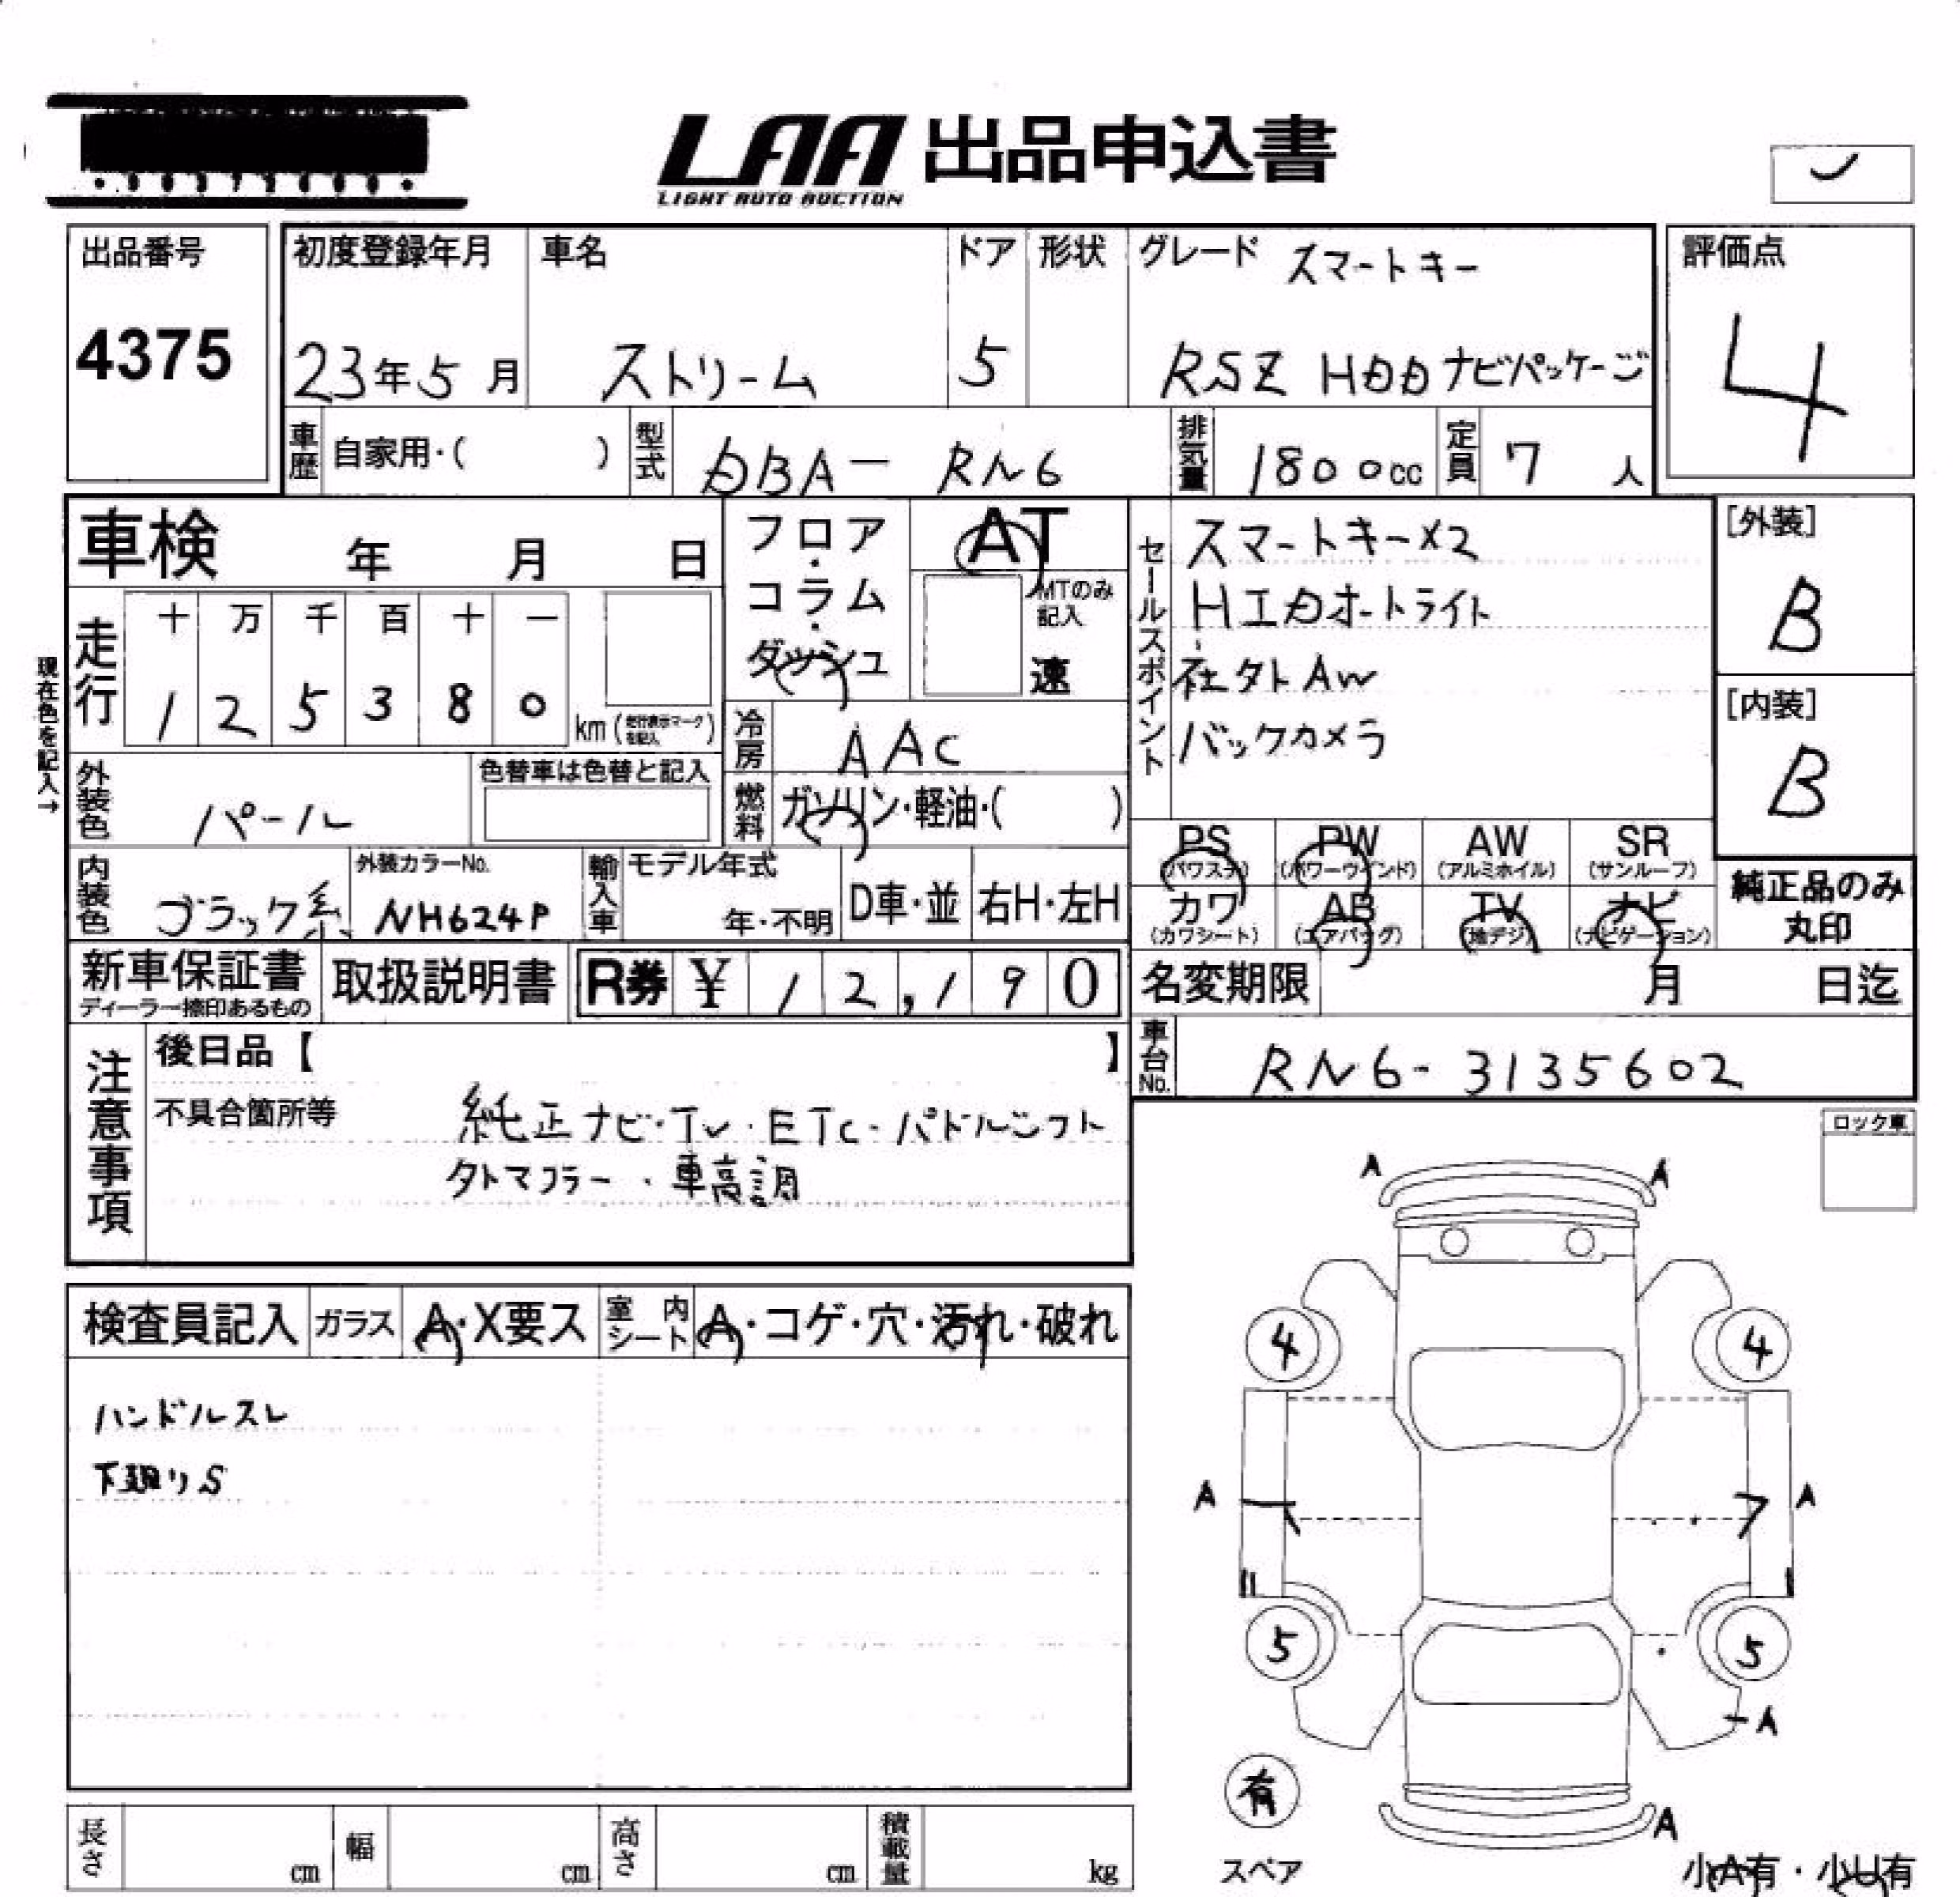 LAA 出品申込書
LIGHT AUTO AUCTION
出品番号
4375
初度登録年月
23年5月
車名
ストリーム
ドア
5
形状
グレード スマートキー
RSZ HDDナビパッケージ
評価点
4
車歴 自家用・( )
型式 DBA- RN6
排気量 1800cc
定員 7人
車検 年 月 日
フロア・コラム・ダッシュ
AT
MTのみ記入
速
セールスポイント
スマートキー×2
HIDオートライト
社外AW
バックカメラ
[外装]
B
[内装]
B
現在色を記入→
走行
十 万 千 百 十 一
1 2 5 3 8 0 km (走行表示マークを記入)
冷房 AAC
外装色 パール
色替車は色替と記入
燃料 ガソリン・軽油・( )
内装色 ブラック系
外装カラーNo.
NH624P
輸入車
モデル年式
年・不明
D車・並
右H・左H
PS (パワステ)
PW (パワーウインド)
AW (アルミホイル)
SR (サンルーフ)
カワ (カワシート)
AB (エアバッグ)
TV (地デジ)
ナビ (ナビゲーション)
純正品のみ
丸印
新車保証書
ディーラー捺印あるもの
取扱説明書
R券 ¥ 12,190
名変期限 月 日迄
車台No. RN6-3135602
注意事項
後日品【 】
不具合箇所等
純正ナビ・TV・ETC・パドルシフト
外マフラー・車高調
ロック車
検査員記入
ガラス A・X要ス
室内シート A・コゲ・穴・汚れ・破れ
ハンドルスレ
下廻りS
A A
4 4
A A
5 5
A
有
スペア
A
小A有・小U有
長さ cm
幅 cm
高さ cm
積載量 kg